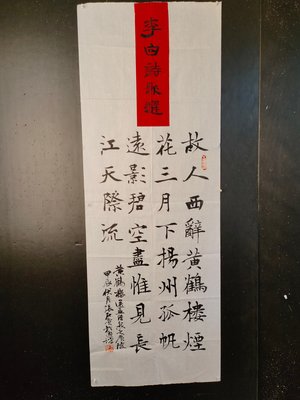 李白詩
故人西辭黃鶴樓煙
花三月下揚州孤帆
遠影碧空盡惟見長
江天際流
黃鶴樓送孟浩然之廣陵
甲辰伏月